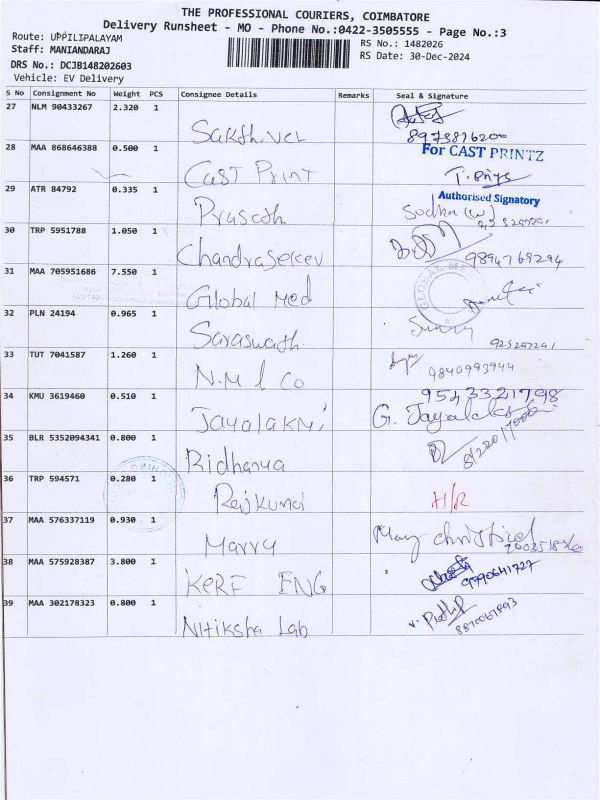 THE PROFESSIONAL COURIERS, COIMBATORE
Delivery Runsheet - MO - Phone No.:0422-3505555 - Page No.:3
Route: UPPILIPALAYAM
RS No.: 1482026
Staff: MANIANDARAJ
RS Date: 30-Dec-2024
DRS No.: DCJB148202603
Vehicle: EV Delivery
S No Consignment No Weight PCS Consignee Details Remarks Seal & Signature
27 NLM 90433267 2.320 1
Sakthivel
8973816200
28 MAA 868646388 0.500 1
For CAST PRINTZ
Cast Print
T. Priya
29 ATR 84792 0.335 1
Authorised Signatory
Prasath
Sudha (W)
30 TRP 5951788 1.050 1
Chandrasekev
9894769294
31 MAA 705951686 7.550 1
GLOBAL ME
Global Med
32 PLN 24194 0.965 1
Saraswath
33 TUT 7041587 1.260 1
9840993944
N.M l Co
34 KMU 3619460 0.510 1
9543321798
Jayalakmi
G. Jayalaks
35 BLR 5352094341 0.800 1
Ridhanya
36 TRP 594571 0.280 1
Rajkumar
H/R
37 MAA 576337119 0.930 1
Marry
May Christ
38 MAA 575928387 3.800 1
KERF ENG
9790641727
39 MAA 302178323 0.800 1
Nitiksha Lab
8870067893